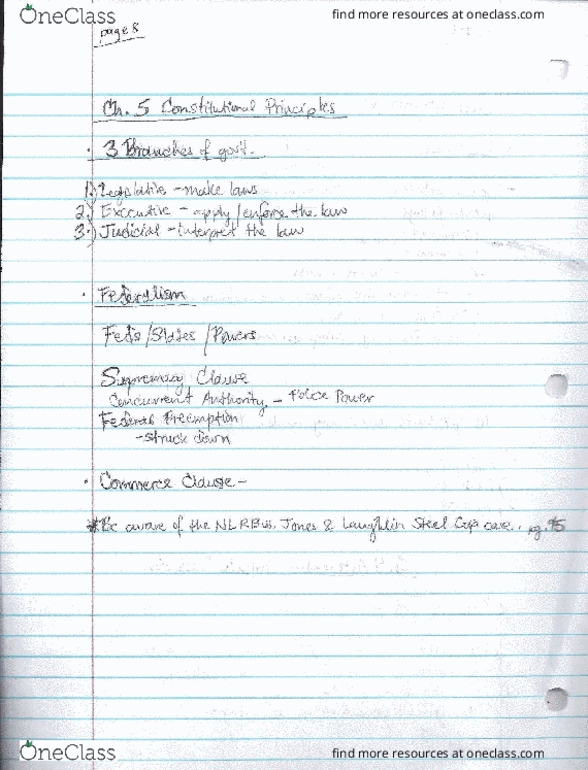 OneClass
find more resources at oneclass.com
page 8
Ch. 5 Constitutional Principles
· 3 Branches of gov't.
1.) Legislative - make laws
2.) Executive - apply/enforce the law
3.) Judicial - interpret the law
· Federalism
Feds/States/Powers
Supremacy Clause
Concurrent Authority - Police Power
Federal Preemption
- struck down
· Commerce Clause -
*Be aware of the NLRB vs. Jones & Laughlin Steel Corp case. pg. 95
OneClass
find more resources at oneclass.com